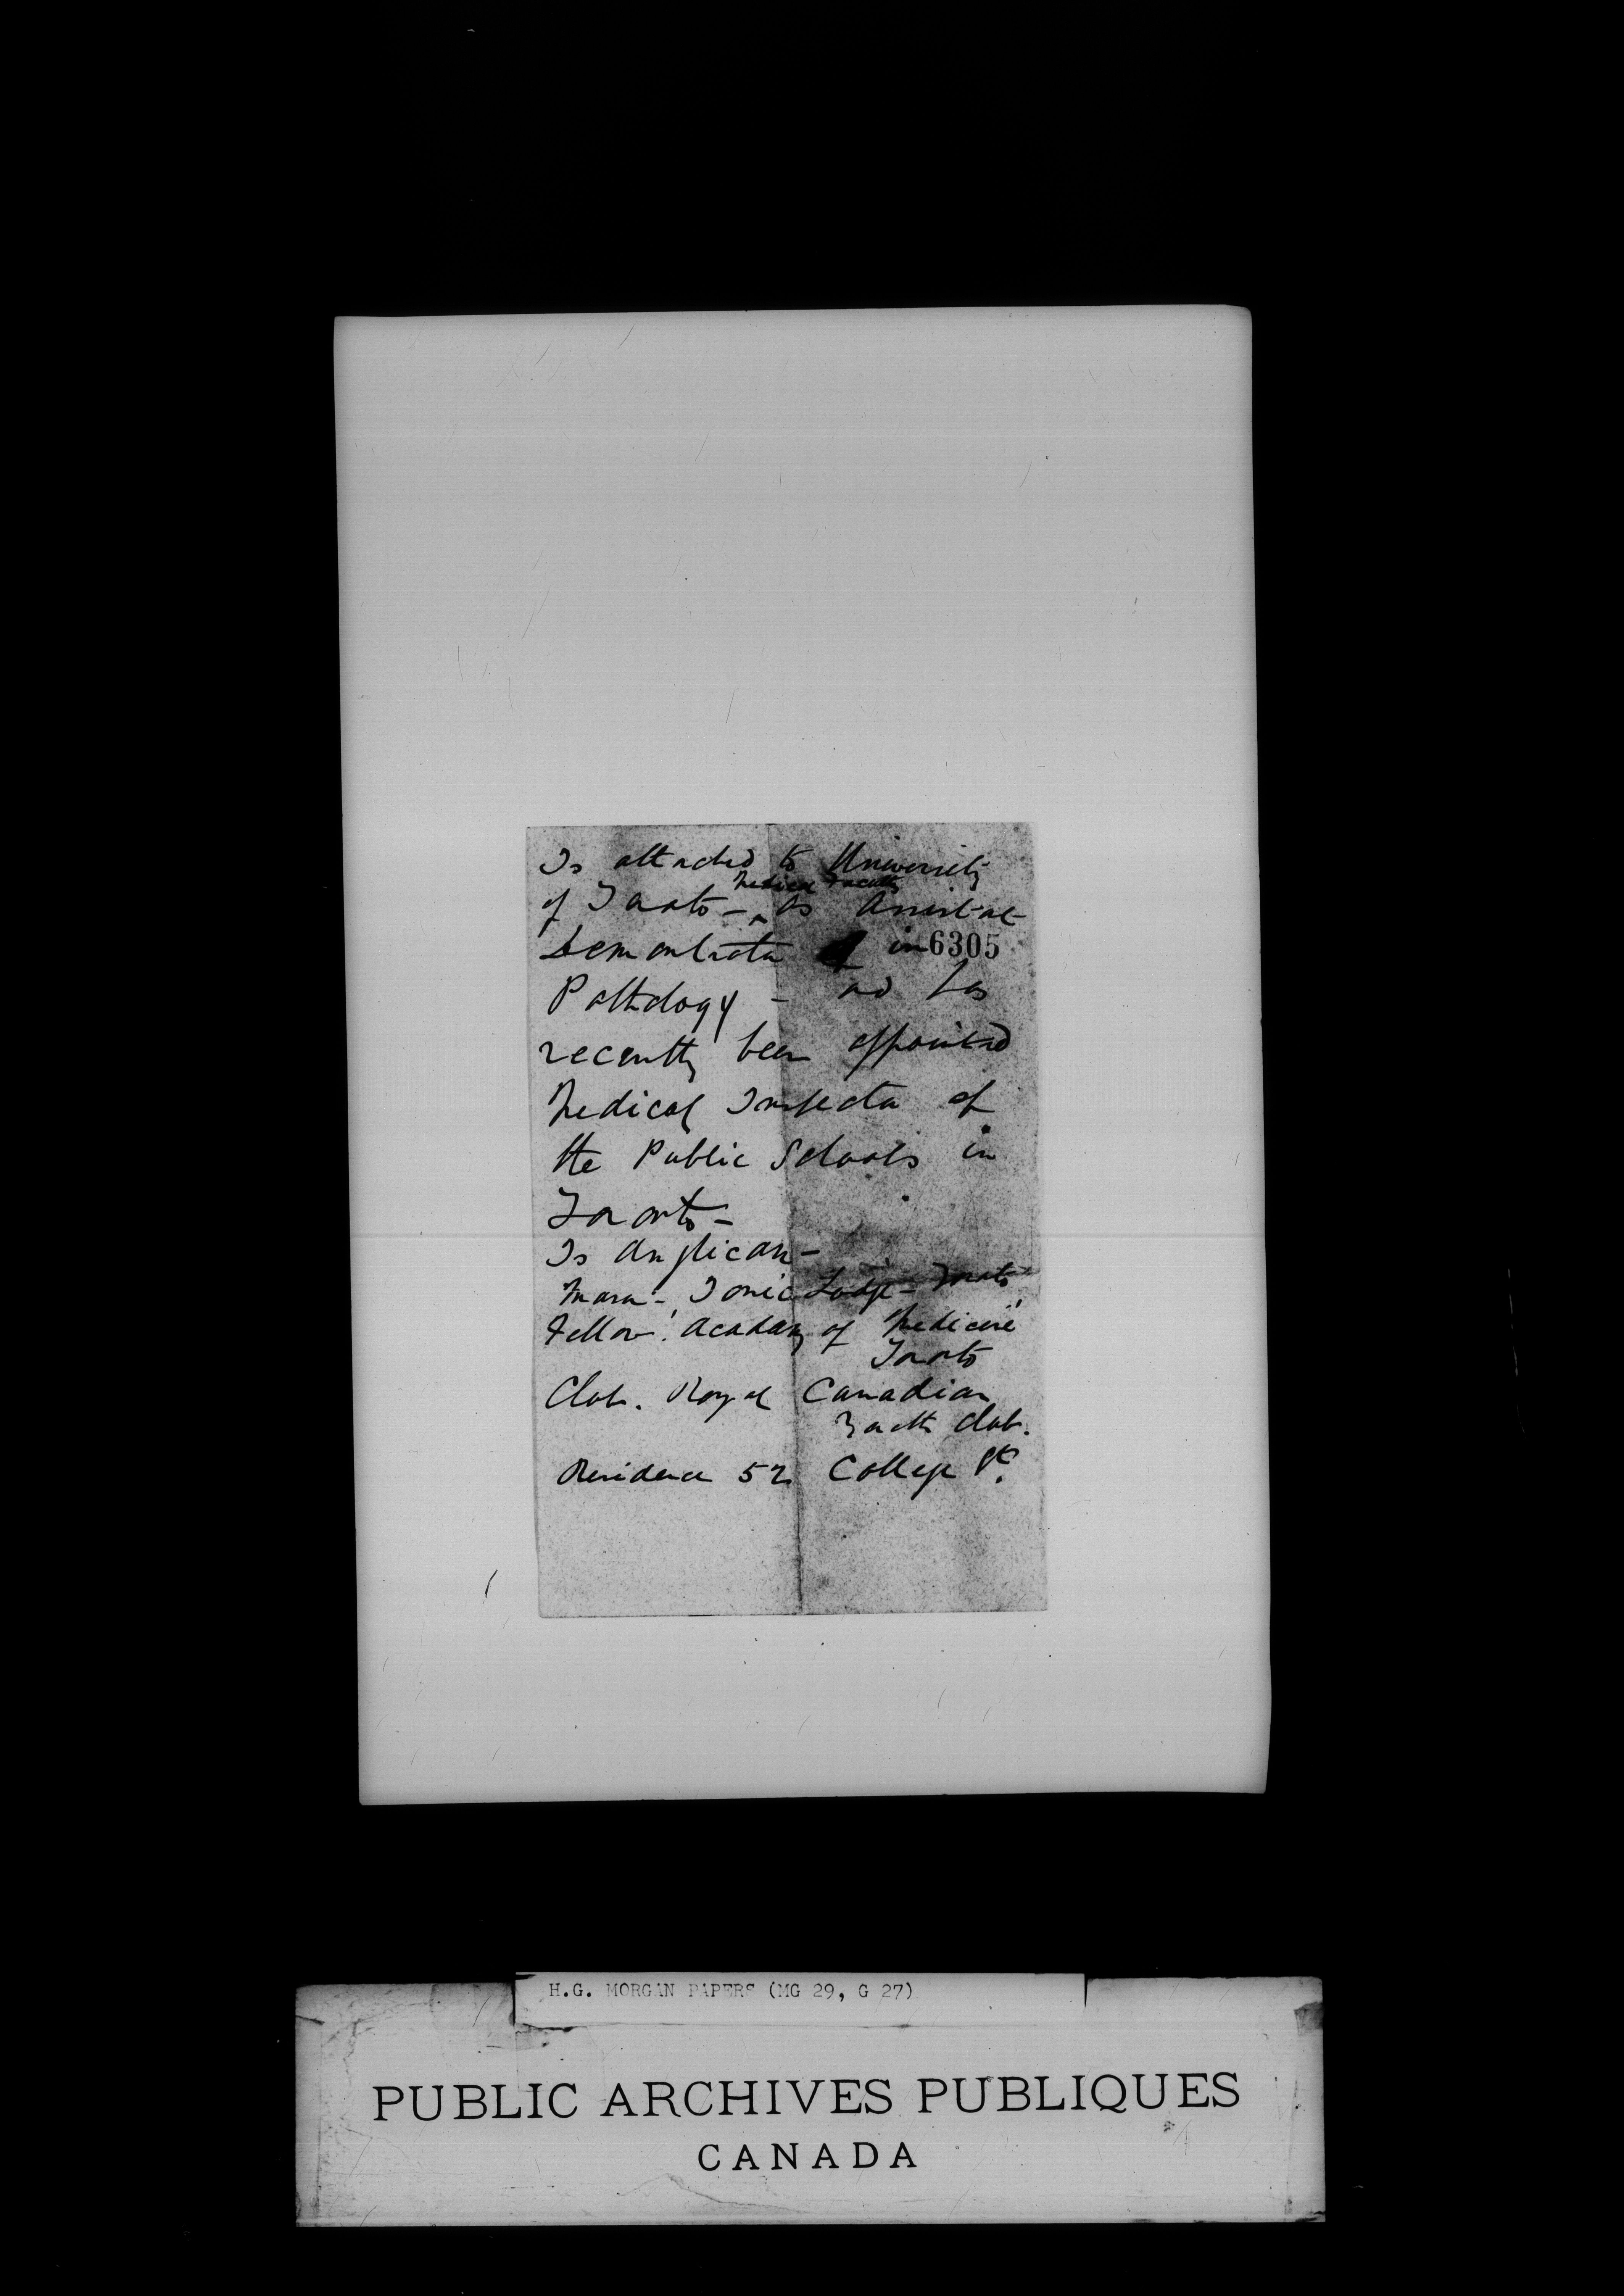 Is attached to University
Medical Faculty
of Toronto - ^ as Assistant
Demonstrator in 6305
Pathology - and has
recently been appointed
Medical Inspector of
the Public Schools in
Toronto -
Is Anglican -
Mason - Ionic Lodge - Toronto
Fellow: Academy of Medicine
Toronto
Club. Royal Canadian
Yacht Club.
Residence 52 College St.
H.G. MORGAN PAPERS (MG 29, G 27)
PUBLIC ARCHIVES PUBLIQUES
CANADA